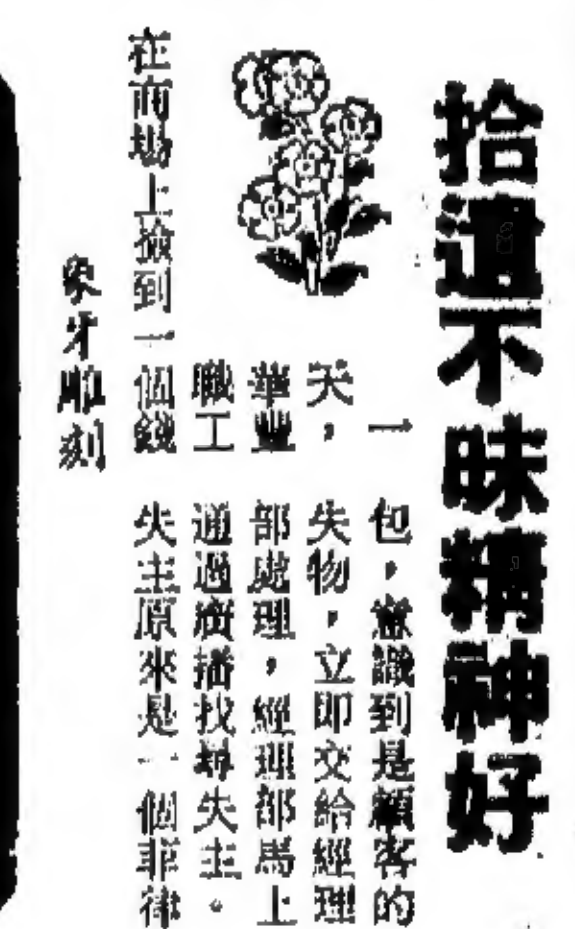 拾遺不昧精神好
一
天，
華豐
職工
在商場上撿到一個錢
包，意識到是顧客的
失物，立即交給經理
部處理，經理部馬上
通過廣播找尋失主。
失主原來是一個菲律
象牙雕刻